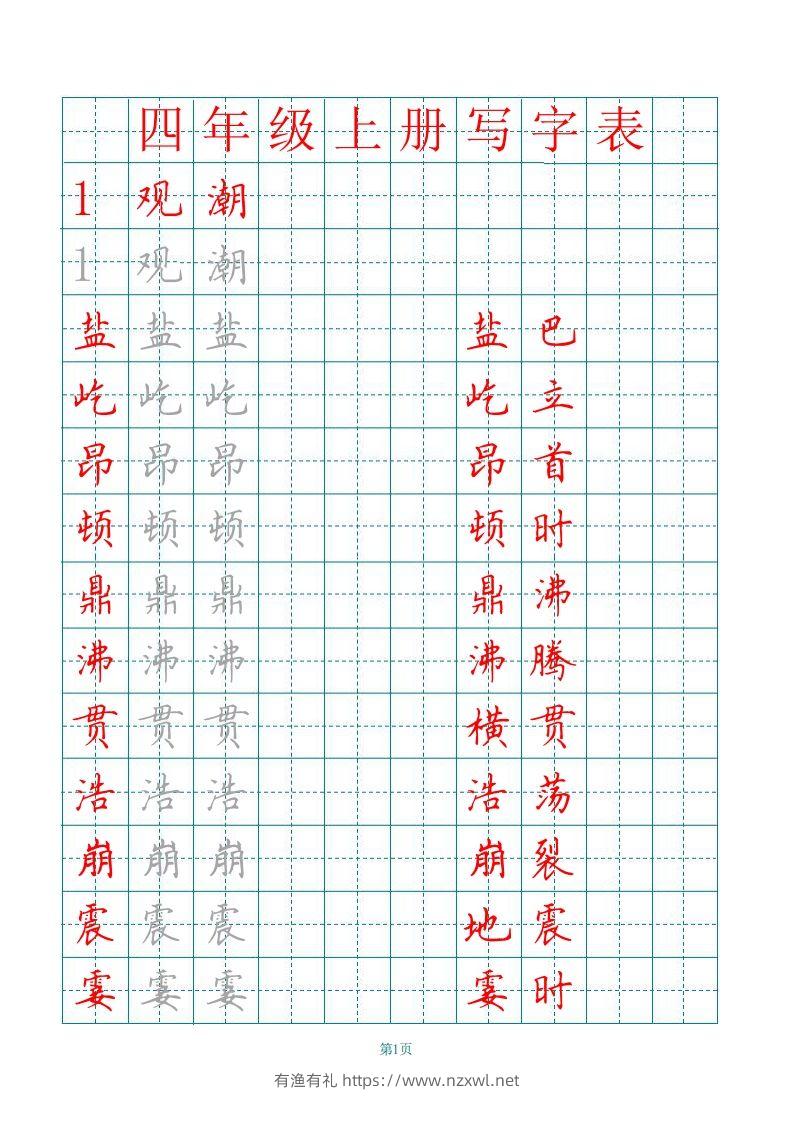 四年级上册写字表
1 观潮
1 观潮
盐 盐 盐 盐巴
屹 屹 屹 屹立
昂 昂 昂 昂首
顿 顿 顿 顿时
鼎 鼎 鼎 鼎沸
沸 沸 沸 沸腾
贯 贯 贯 横贯
浩 浩 浩 浩荡
崩 崩 崩 崩裂
震 震 震 地震
霎 霎 霎 霎时
第1页
有渔有礼 https://www.nzxwl.net